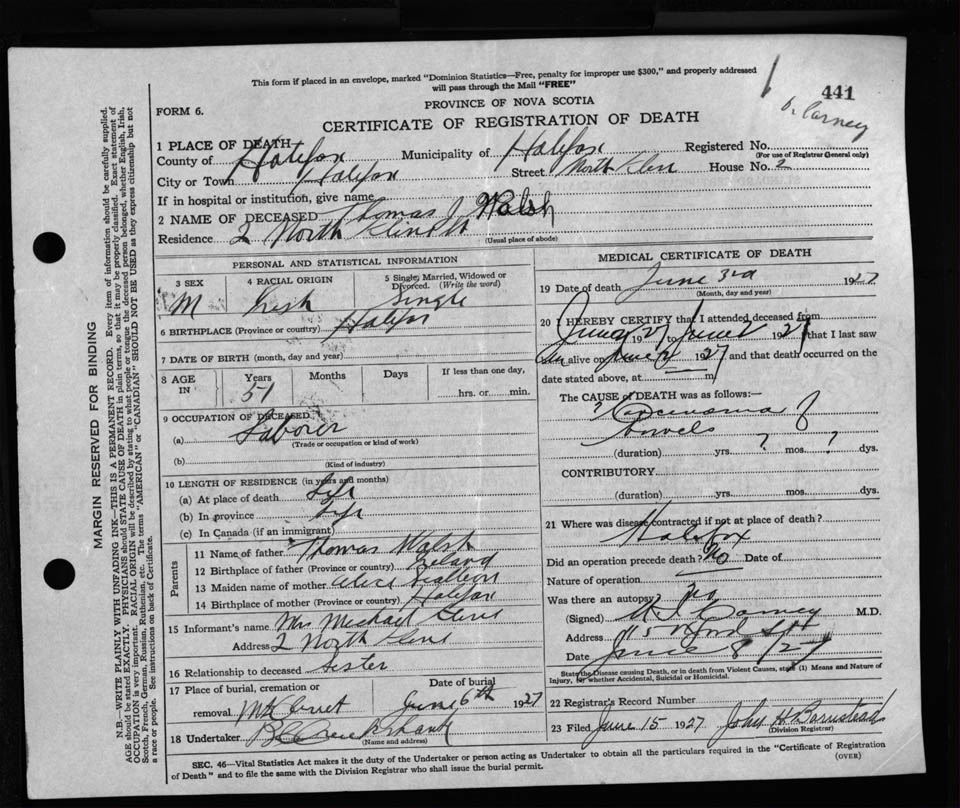 This form if placed in an envelope, marked "Dominion Statistics—Free, penalty for improper use $300," and properly addressed
will pass through the Mail "FREE"
441
Carney
FORM 6.
PROVINCE OF NOVA SCOTIA
CERTIFICATE OF REGISTRATION OF DEATH
1 PLACE OF DEATH
County of Halifax Municipality of Halifax Registered No.
(For use of Registrar General only)
City or Town Halifax Street North House No. 2
If in hospital or institution, give name
2 NAME OF DECEASED Thomas J Walsh
Residence 2 North
(Usual place of abode)
PERSONAL AND STATISTICAL INFORMATION
3 SEX 4 RACIAL ORIGIN 5 Single, Married, Widowed or Divorced. (Write the word)
M Irish Single
6 BIRTHPLACE (Province or country) Halifax
7 DATE OF BIRTH (month, day and year)
8 AGE IN Years Months Days If less than one day,
51 hrs. or min.
9 OCCUPATION OF DECEASED
(a) Laborer
(Trade or occupation or kind of work)
(b)
(Kind of industry)
10 LENGTH OF RESIDENCE (in years and months)
(a) At place of death Life
(b) In province Life
(c) In Canada (if an immigrant)
Parents
11 Name of father Thomas Walsh
12 Birthplace of father (Province or country) Ireland
13 Maiden name of mother
14 Birthplace of mother (Province or country) Halifax
15 Informant's name Mrs Michael
Address 2 North
16 Relationship to deceased Sister
17 Place of burial, cremation or removal Date of burial
June 6th 1927
18 Undertaker
(Name and address)
MEDICAL CERTIFICATE OF DEATH
19 Date of death June 3rd 1927
(Month, day and year)
20 I HEREBY CERTIFY that I attended deceased from
June 1927 June 2 1927 that I last saw
him alive on June 2 1927 and that death occurred on the
date stated above, at m
The CAUSE OF DEATH was as follows:—
? Carcinoma of
Bowels
(duration) yrs. ? mos. ? dys.
CONTRIBUTORY
(duration) yrs. mos. dys.
21 Where was disease contracted if not at place of death?
Halifax
Did an operation precede death? No Date of
Nature of operation
Was there an autopsy? no
(Signed) Carney M.D.
Address
Date June 8/27
State the Disease causing Death, or in death from Violent Causes, state (1) Means and Nature of
Injury, (2) whether Accidental, Suicidal or Homicidal.
22 Registrar's Record Number
23 Filed June 15 1927 John H Barnstead
(Division Registrar)
SEC. 46—Vital Statistics Act makes it the duty of the Undertaker or person acting as Undertaker to obtain all the particulars required in the "Certificate of Registration
of Death" and to file the same with the Division Registrar who shall issue the burial permit.
(OVER)
MARGIN RESERVED FOR BINDING
N.B.—WRITE PLAINLY WITH UNFADING INK—THIS IS A PERMANENT RECORD. Every item of information should be carefully supplied.
AGE should be stated EXACTLY. PHYSICIANS should STATE CAUSE OF DEATH in plain terms, so that it may be properly classified. Exact statement of
OCCUPATION is very important. RACIAL ORIGIN will be described by stating to what people or tongue the deceased person belonged, whether English, Irish,
Scotch, French, German, Russian, Ruthenian, etc. The terms "AMERICAN" or "CANADIAN" SHOULD NOT BE USED as they express citizenship but not
a race or people. See instructions on back of Certificate.